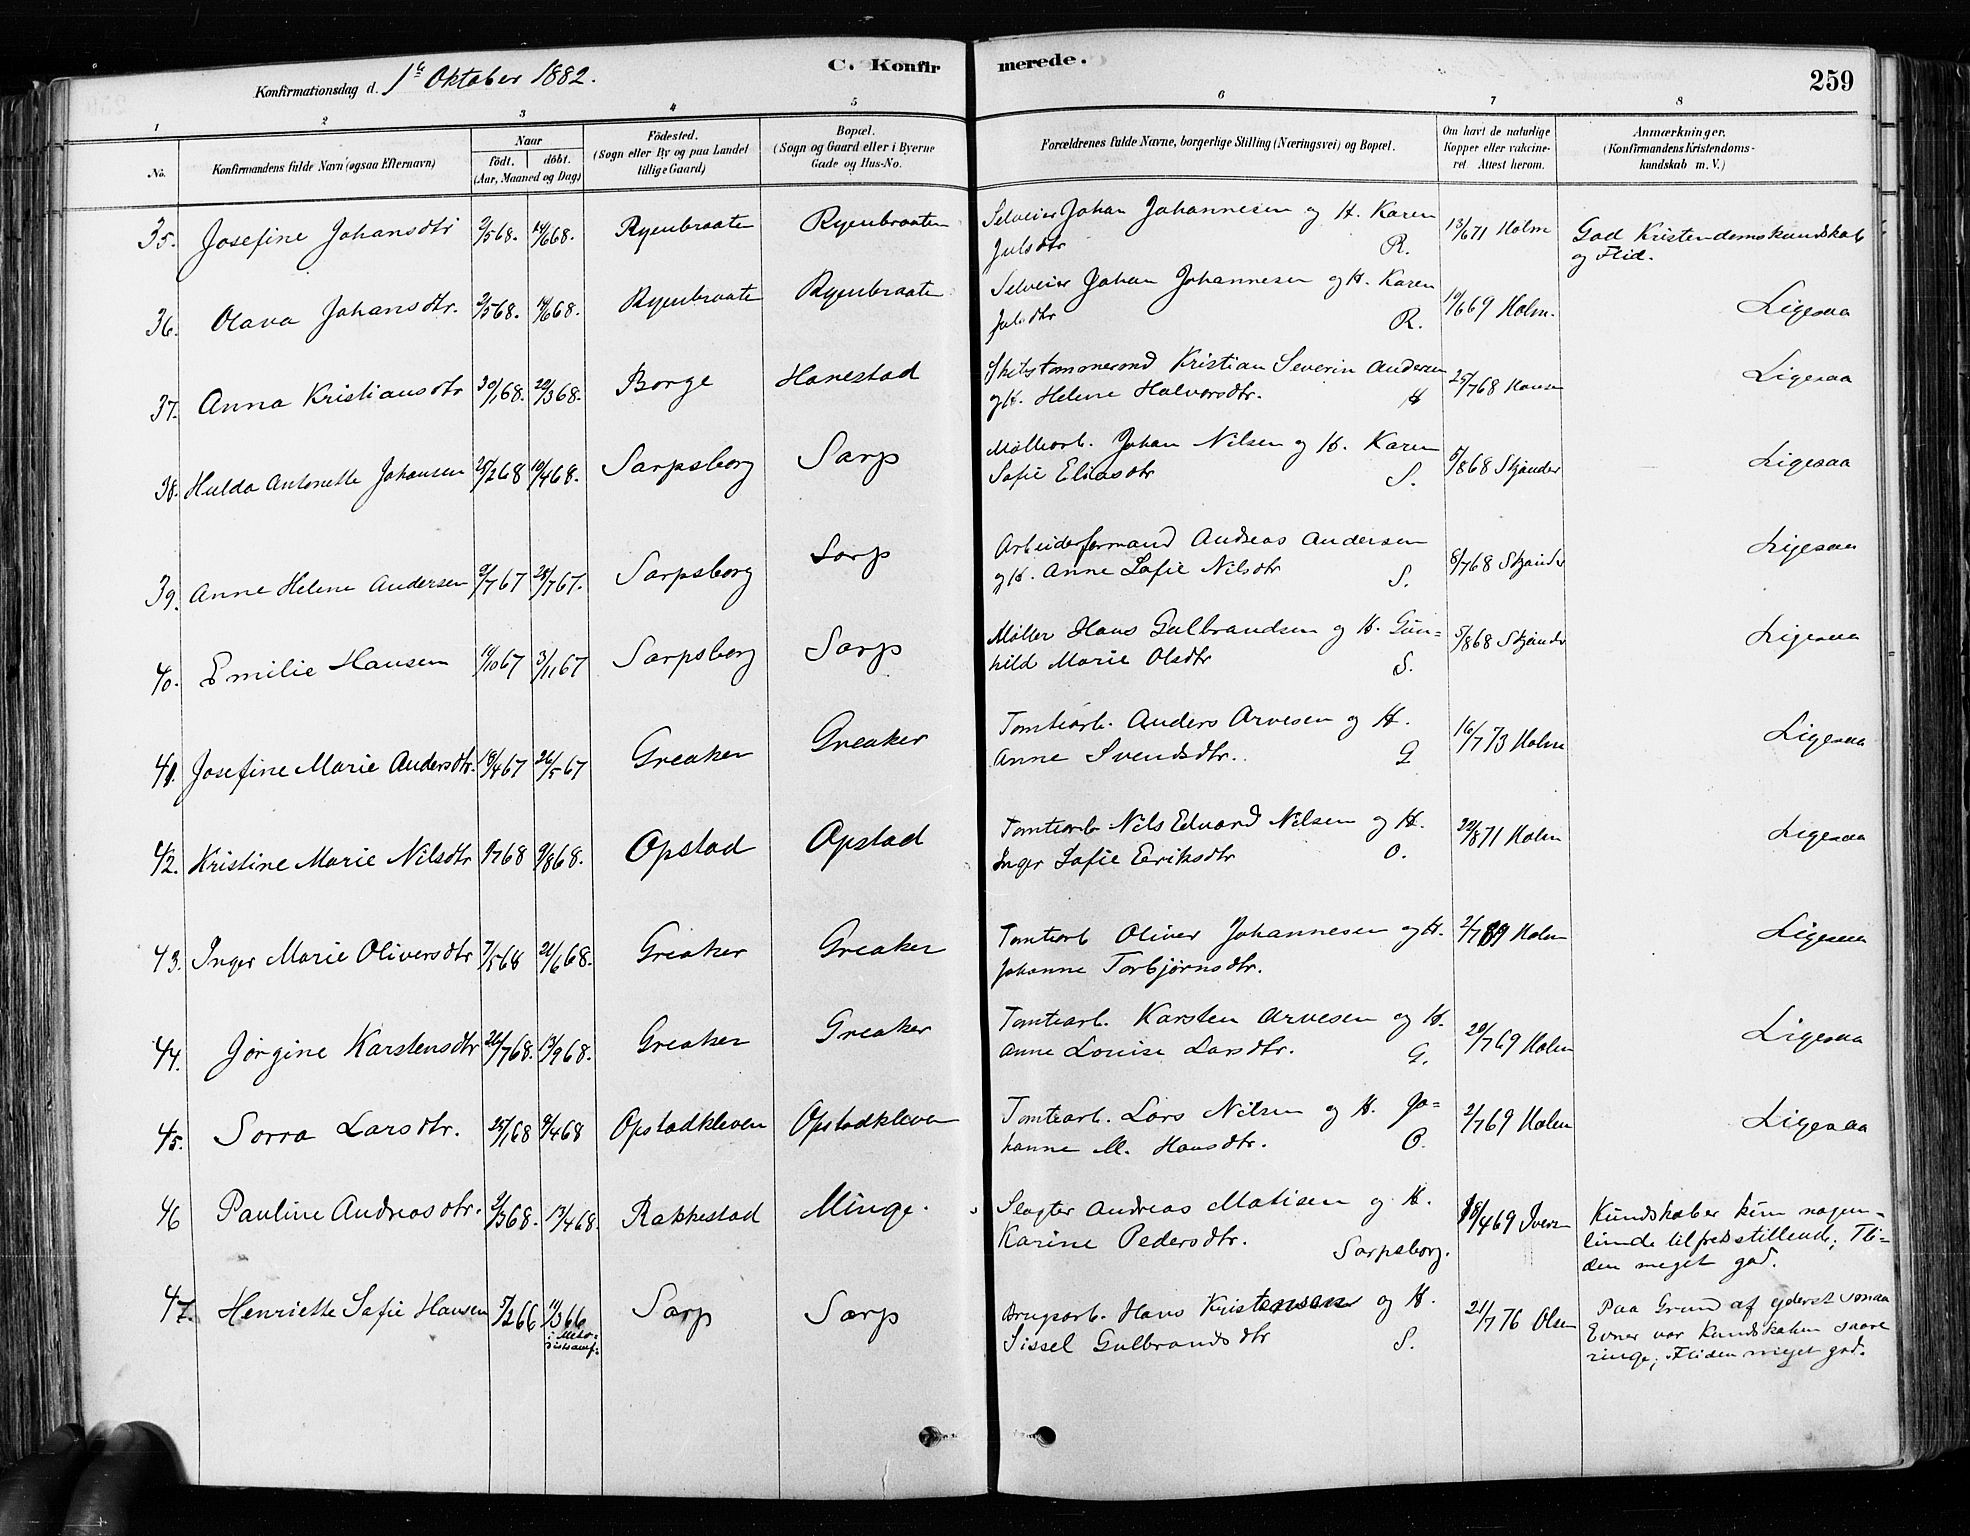 Konfirmationsdag d. 1ste Oktober 1882.
C. Konfirmerede.
259
1 2 3 4 5 6 7 8
No.
Konfirmandens fulde Navn (ogsaa Efternavn)
Naar
födt. döbt.
(Aar, Maaned og Dag)
Födested.
(Sogn eller By og paa Landet
tillige Gaard)
Bopæl.
(Sogn og Gaard eller i Byerne
Gade og Hus-No.
Forældrenes fulde Navne, borgerlige Stilling (Næringsvei) og Bopæl.
Om havt de naturlige
Kopper eller vakcine-
ret. Attest herom.
Anmærkninger.
(Konfirmandens Kristendoms-
kundskab m. V.)
35. Josefine Johansdtr 2/5 68. 14/6 68. Ryenbraaten Ryenbraaten Selveier Johan Johannesen og H. Karen
Julsdtr R. 13/6 71 Holm God Kristendomskundskab
og Flid.
36. Olava Johansdtr. 2/5 68. 14/6 68. Ryenbraaten Ryenbraaten Selveier Johan Johannesen og H. Karen
Julsdtr R. 10/6 69 Holm. Ligesaa
37. Anna Kristiansdtr 30/1 68. 22/3 68. Borge Hanestad Skibstømmermd Kristian Severin Andersen
og H. Helene Halvorsdtr. H 25/7 68 Ligesaa
38. Hulda Antonette Johansen 25/2 68 10/4 68. Sarpsborg Sarp Møllearb. Johan Nilsen og H. Karen
Sofie Eliasdtr S. 5/8 68 Stjander Ligesaa
39. Anne Helene Andersen 2/7 67 28/7 67. Sarpsborg Sarp Arbeiderformand Andreas Andersen
og H. Anne Sofie Nilsdtr S. 8/7 68 Stjander Ligesaa
40. Emilie Hansen 11/10 67 3/11 67 Sarpsborg Sarp Møller Hans Gulbrandsen og H. Gun-
hild Marie Olsdtr S. 5/8 68 Stjander Ligesaa
41. Josefine Marie Andersdtr. 19/4 67 26/5 67 Greaker Greaker Tomtearb. Anders Arvesen og H.
Anne Svendsdtr. G 16/7 73 Holm Ligesaa
42. Kristine Marie Nilsdtr 9/7 68 9/8 68. Opstad Opstad Tomtearb Nils Edvard Nilsen og H.
Inger Sofie Eriksdtr O. 22/8 71 Holm Ligesaa
43. Inger Marie Oliversdtr 7/5 68 21/6 68. Greaker Greaker Tomtearb Oliver Johannesen og H.
Johanne Torbjørnsdtr. 2/7 69 Holm Ligesaa
44. Jørgine Karstensdtr 26/7 68. 13/9 68. Greaker Greaker Tomtearb. Karsten Arvesen og H.
Anne Louise Larsdtr. G. 20/7 69 Holm Ligesaa
45. Sorra Larsdtr. 25/1 68 9/4 68 Opstadkleven Opstadkleven Tomtearb. Lars Nilsen og H. Jo-
hanne M. Hansdtr. O. 2/7 69 Holm Ligesaa
46 Pauline Andreasdtr. 2/3 68. 13/4 68. Rakkestad Minge. Slagter Andreas Matisen og H.
Karine Pedersdtr. Sarpsborg. 18/4 69 Iversen Kundskaber kun nogen-
lunde tilfredsstillende; Fli-
den meget god.
47. Henriette Sofie Hansen 5/2 66 11/3 66 Sarp Sarp Brugsarb. Hans Kristensen og H.
i Metho-
distsamf. Sissel Gulbrandsdtr S. 21/7 76 Olsen Paa Grund af yderst smaa
Evner var Kundskaben saare
ringe; Fliden meget god.